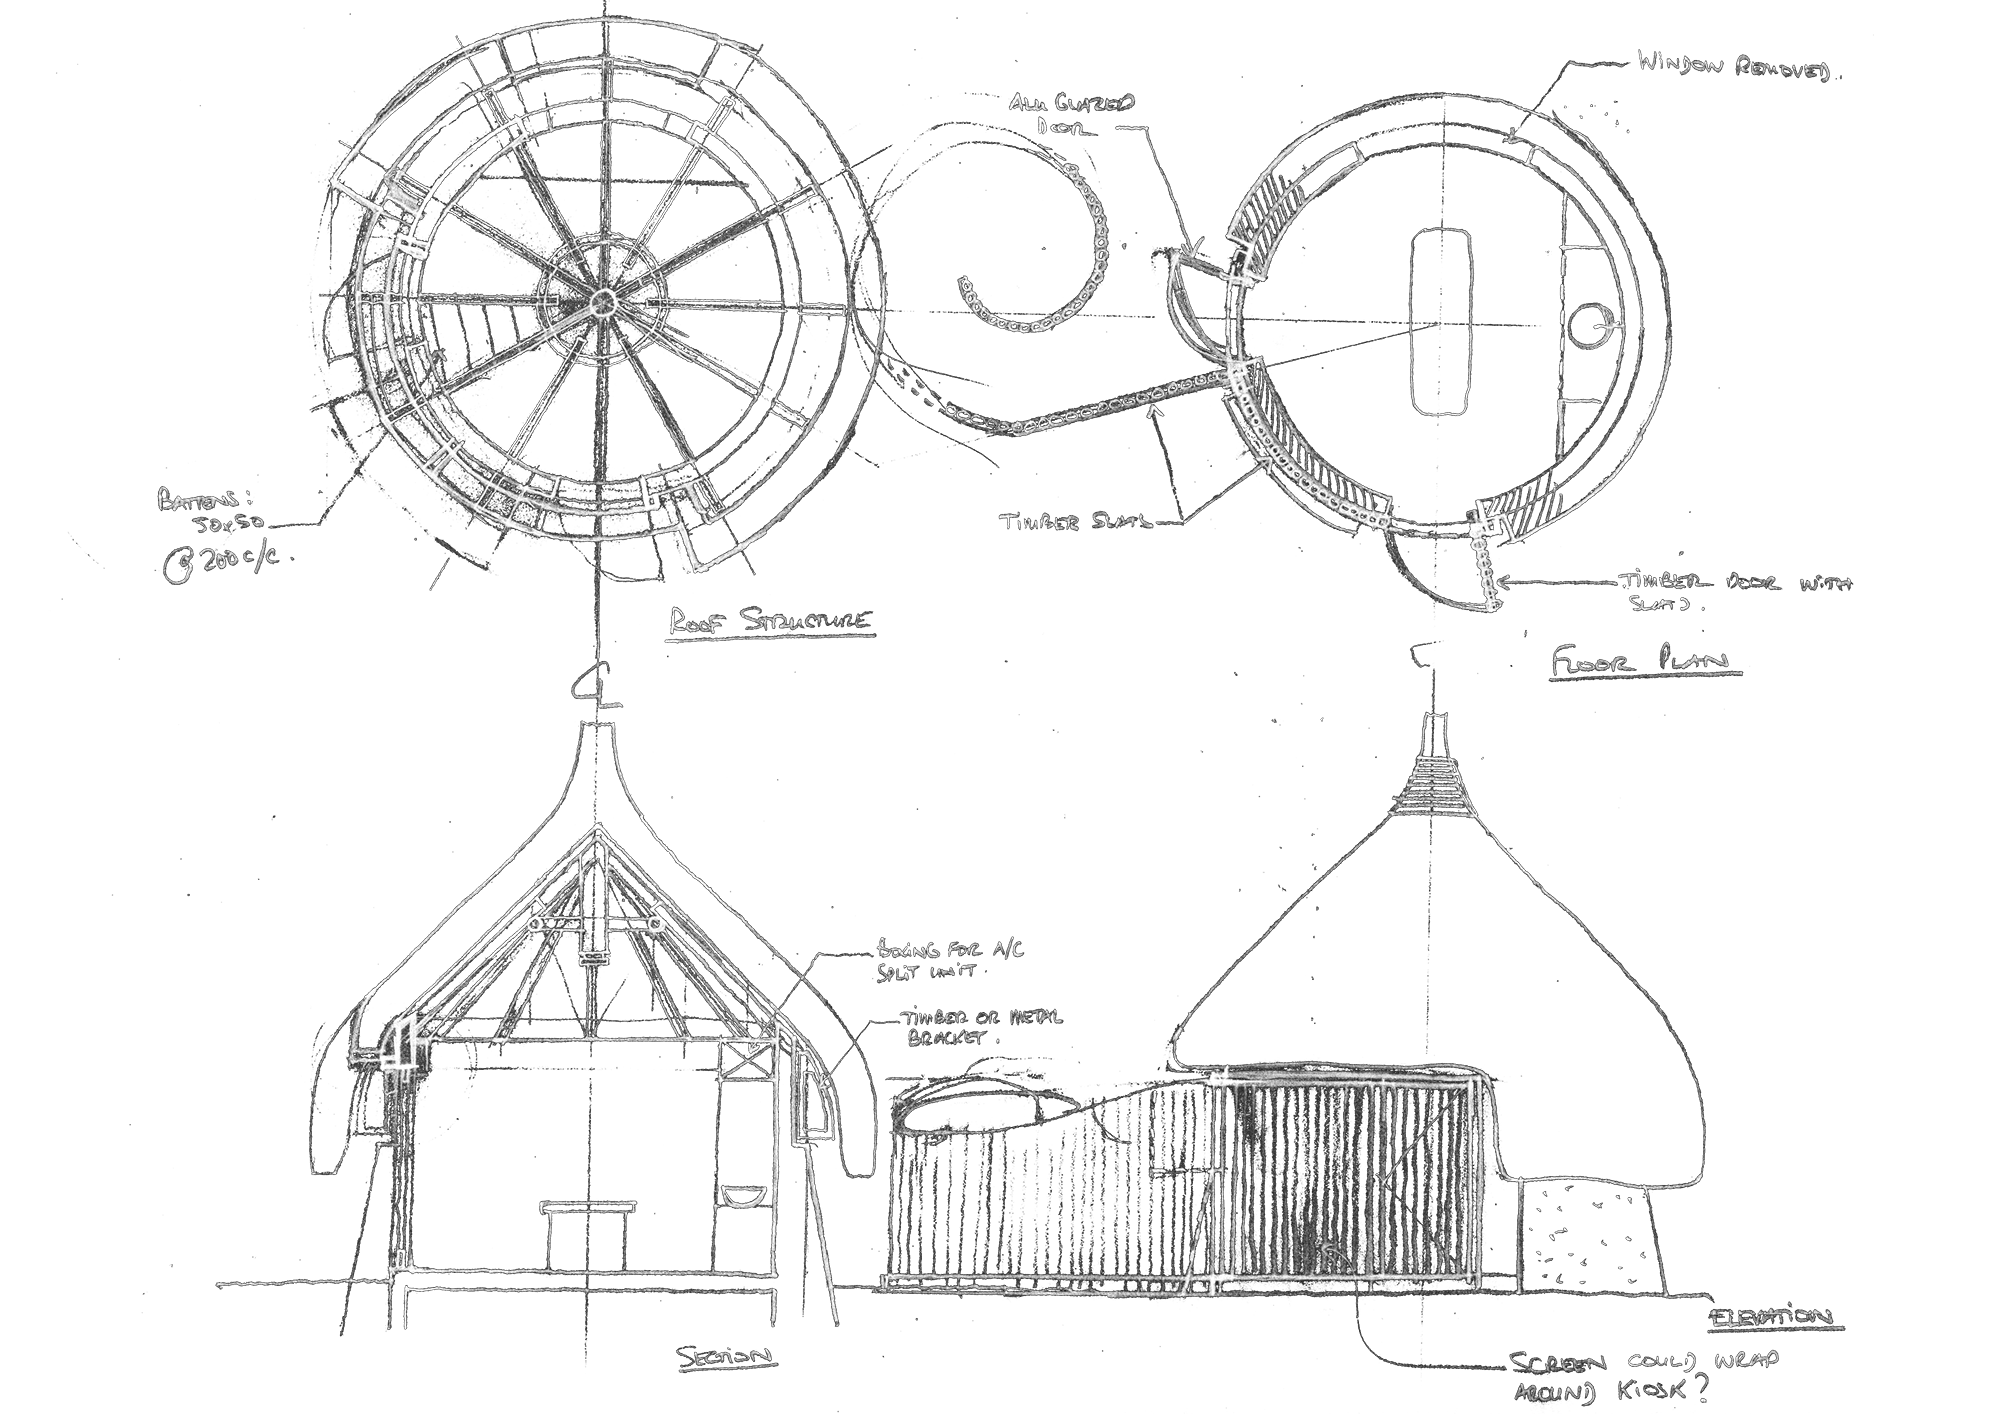 WINDOW REMOVED.
ALU GLAZED
DOOR
BATTENS:
50x50
@ 200 C/C.
TIMBER SLATS
TIMBER DOOR WITH
SLATS.
ROOF STRUCTURE
FLOOR PLAN
CL
BOXING FOR A/C
SPLIT UNIT.
TIMBER OR METAL
BRACKET.
ELEVATION
SECTION
SCREEN COULD WRAP
AROUND KIOSK?